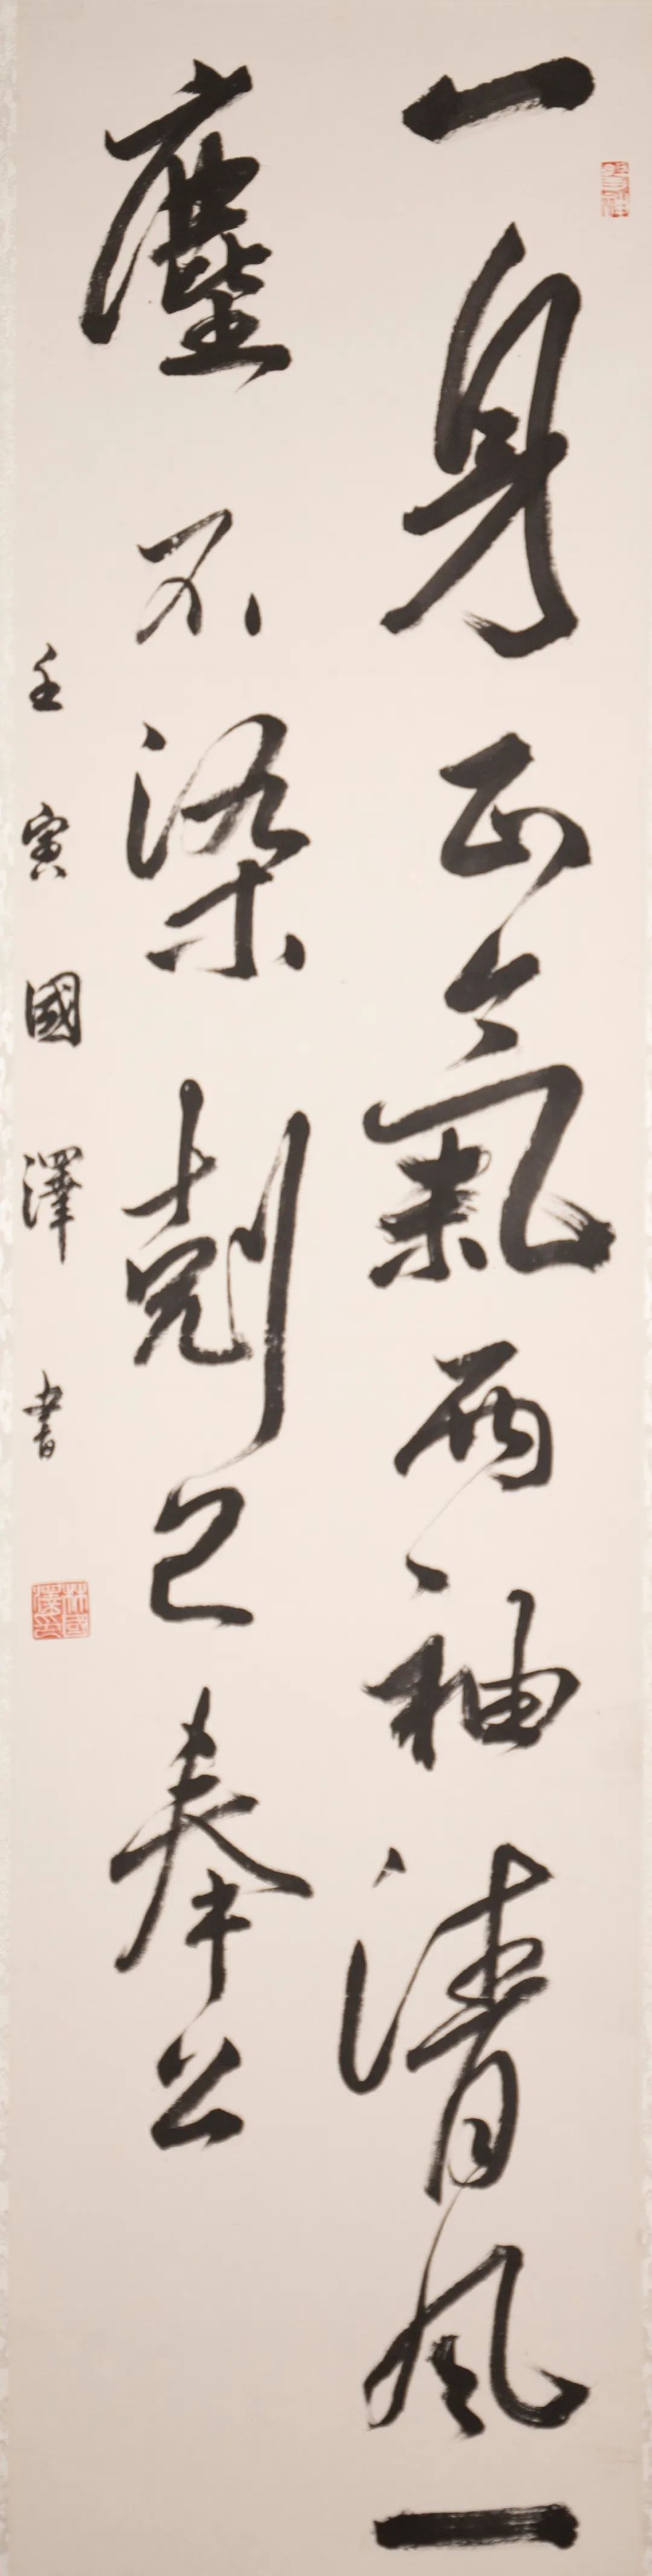 一身正氣兩袖清風一
塵不染剋己奉公
壬寅國澤書